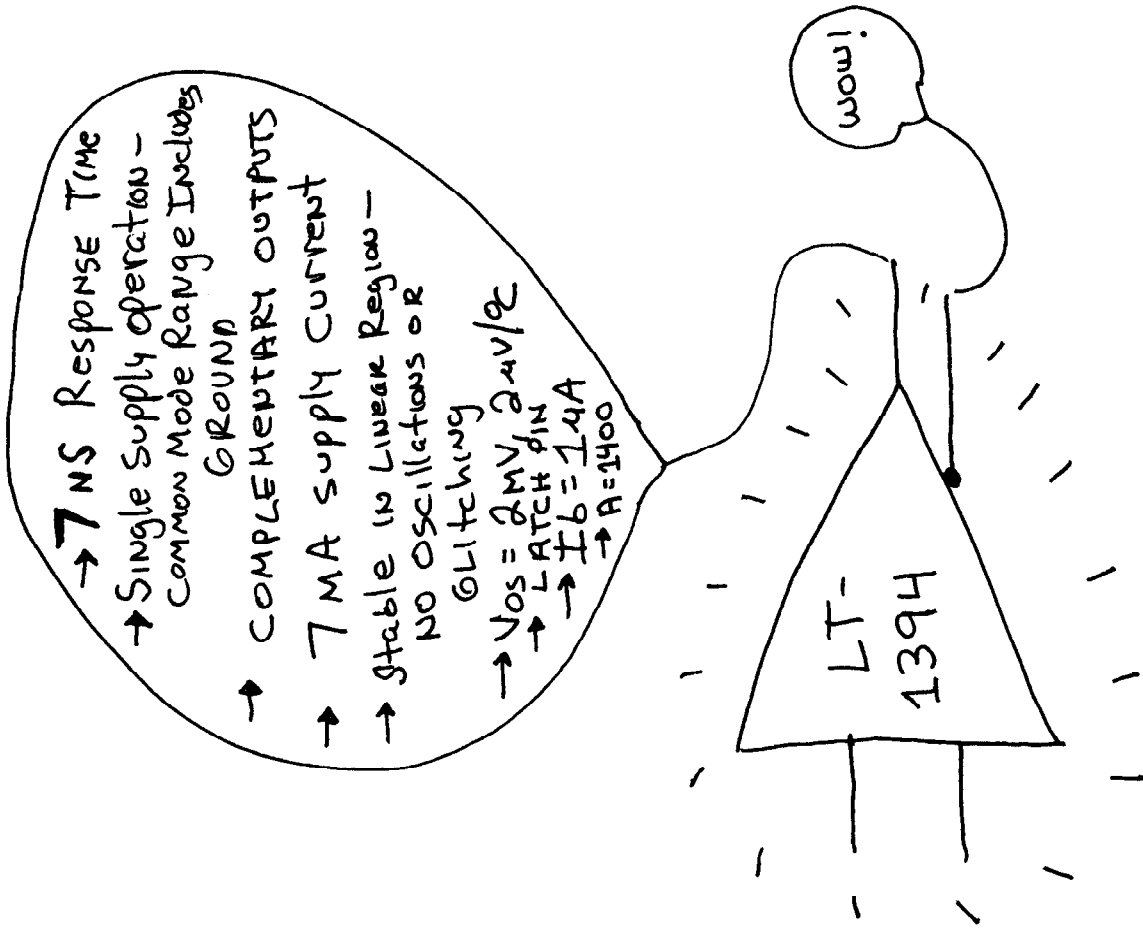 → 7 NS RESPONSE TIME
→ SINGLE SUPPLY OPERATION –
COMMON MODE RANGE INCLUDES
GROUND
→ COMPLEMENTARY OUTPUTS
→ 7 MA SUPPLY CURRENT
→ Stable IN LINEAR REGION –
NO OSCILLATIONS OR
GLITCHING
→ VOS = 2MV, 2µV/°C
→ LATCH PIN
→ Ib = 1µA
→ A=1400
WOW!
LT-
1394